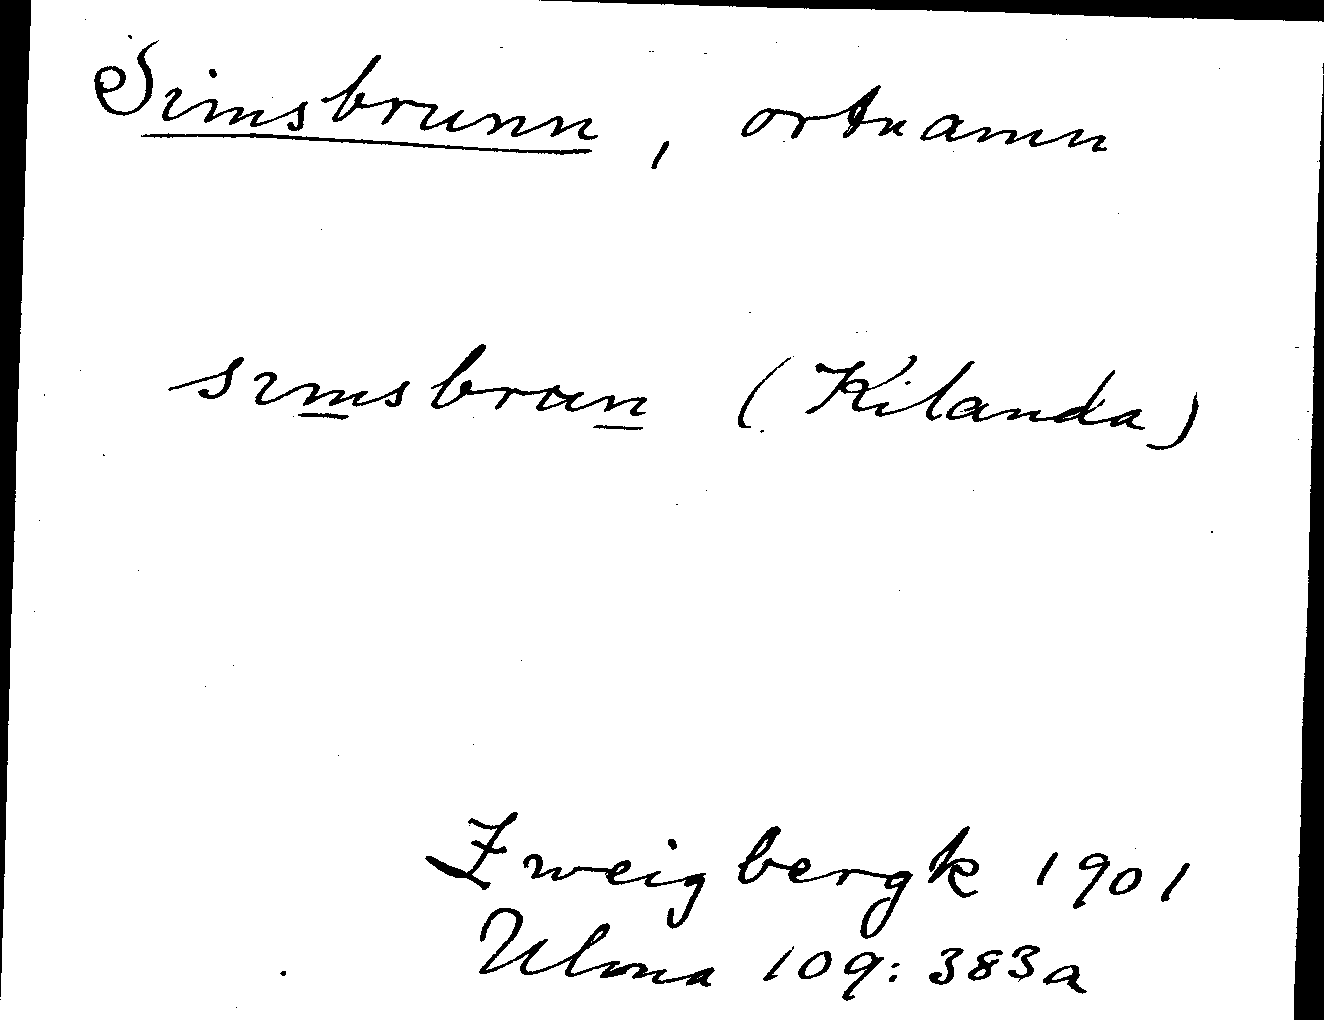 Simsbrunn, ortnamn
sımsbrun (Kilanda)
Zweigbergk 1901
Ulma 109:383a